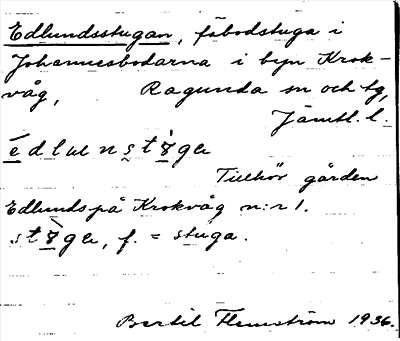 Edlundsstugan, fäbodstuga i
Johannesbodarna i byn Krok-
våg, Ragunda sn och tg,
Jämtl. l.
Tillhör gården
Edlunds på Krokvåg n:r 1.
f. = stuga.
Bertil Flemström 1936.